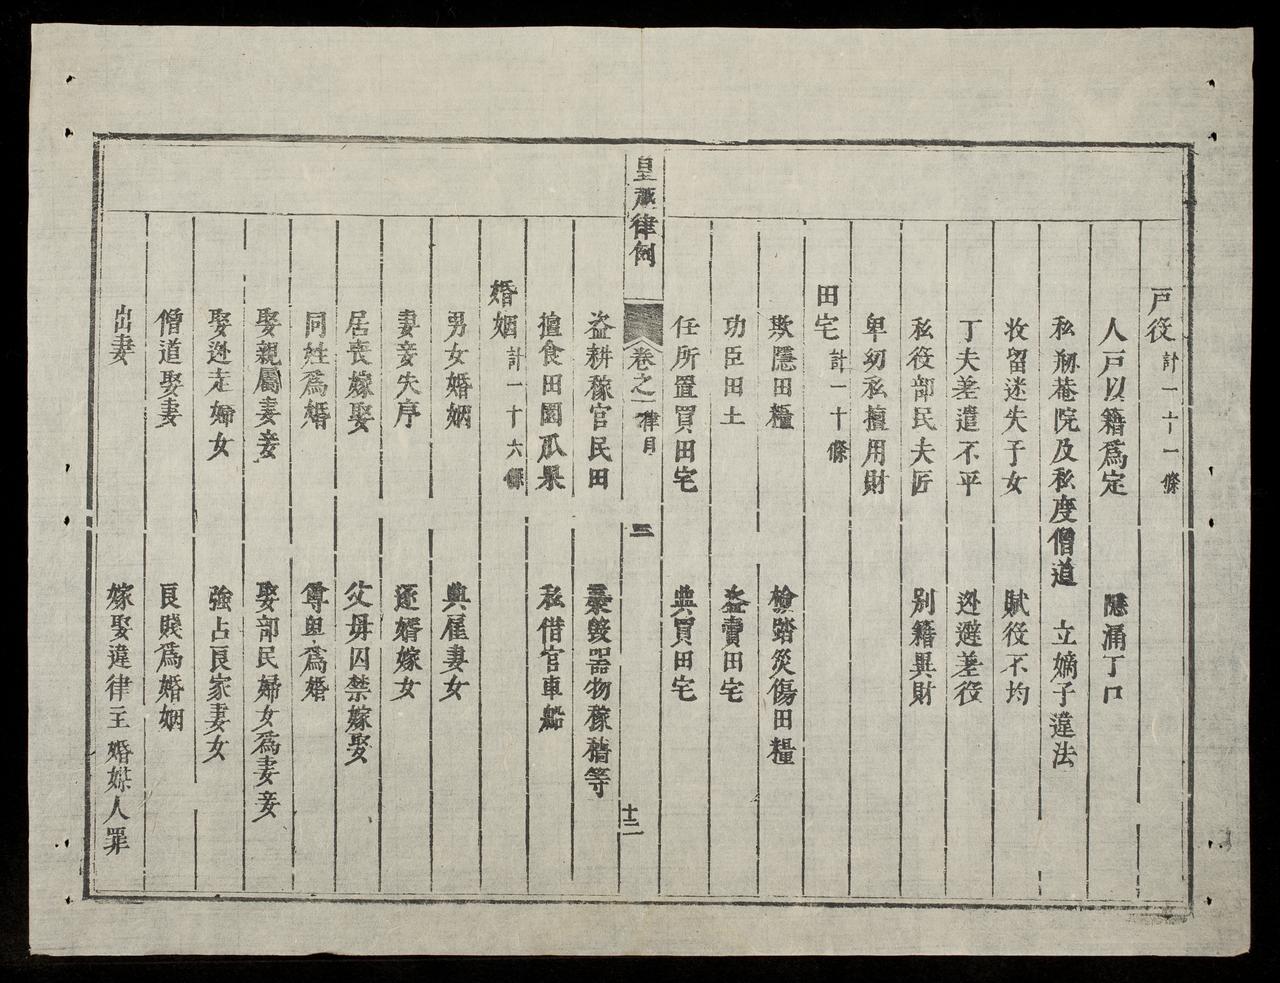 戶役計一十一條
人戶以籍爲定　隱漏丁口
私剏菴院及私度僧道　立嫡子違法
收留迷失子女　賦役不均
丁夫差遣不平　逃避差役
私役部民夫匠　別籍異財
卑幼私擅用財
田宅計一十條
欺隱田糧　檢踏災傷田糧
功臣田土　盜賣田宅
任所置買田宅　典買田宅
皇越律例　卷之一律目　三　十二
盗耕稼官民田　棄毀器物稼穡等
擅食田園瓜果　私借官車船
婚姻計一十六條
男女婚姻　典雇妻女
妻妾失序　逐婿嫁女
居喪嫁娶　父母囚禁嫁娶
同姓爲婚　尊卑爲婚
娶親屬妻妾　娶部民婦女爲妻妾
娶逃走婦女　強占良家妻女
僧道娶妻　良賤爲婚姻
出妻　嫁娶違律主婚媒人罪